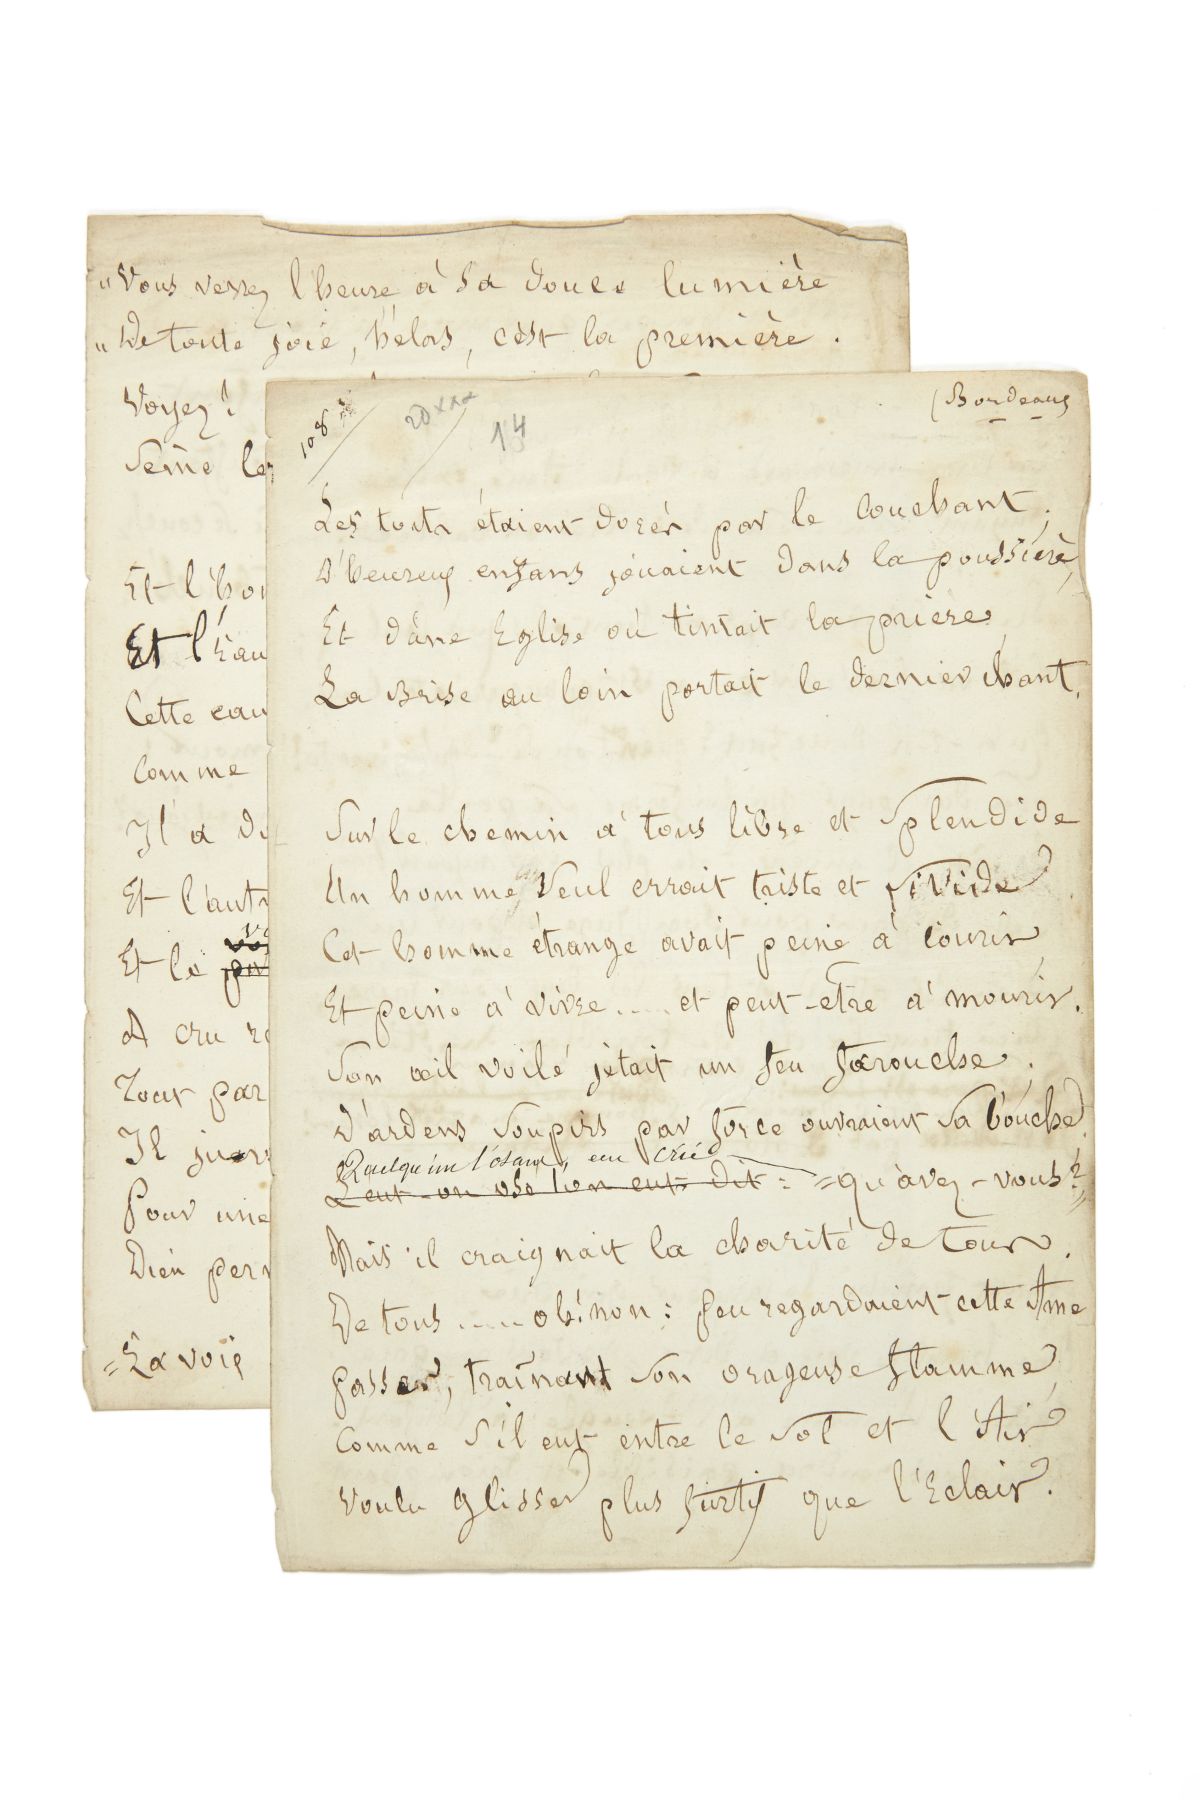 "Vous verrez l'heure à sa douce lumière
"De toute joie, hélas, c'est la première.
Voyez!
Sème
Et l'
Et l'
Cette
Comme
Il a
Et l'
Et le
A cru
Tout par
Il
Pour une
Dieu
=La voix
(Bordeaux
108
20xxx
14
Les toits étaient dorés par le couchant,
D'heureux enfans jouaient dans la poussière,
Et d'une Eglise où tintait la prière
La Brise au loin portait le dernier chant.
Sur le chemin à tous libre et splendide
Un homme seul errait triste et livide
Cet homme étrange avait peine à courir
Et peine à vivre.... et peut-etre à mourir.
Son œil voilé jetait un feu farouche.
D'ardens soupirs par force ouvraient sa bouche.
Quelqu'un l'osant, eut crié
L'eut-on osé l'on eut dit : =qu'avez-vous?=
Mais il craignait la charité de tous.
De tous ..... oh! non : peu regardaient cette Ame
passer, traînant son orageuse flamme,
Comme s'il eut entre le sol et l'Air
Voulu glisser plus furtif que l'Eclair.